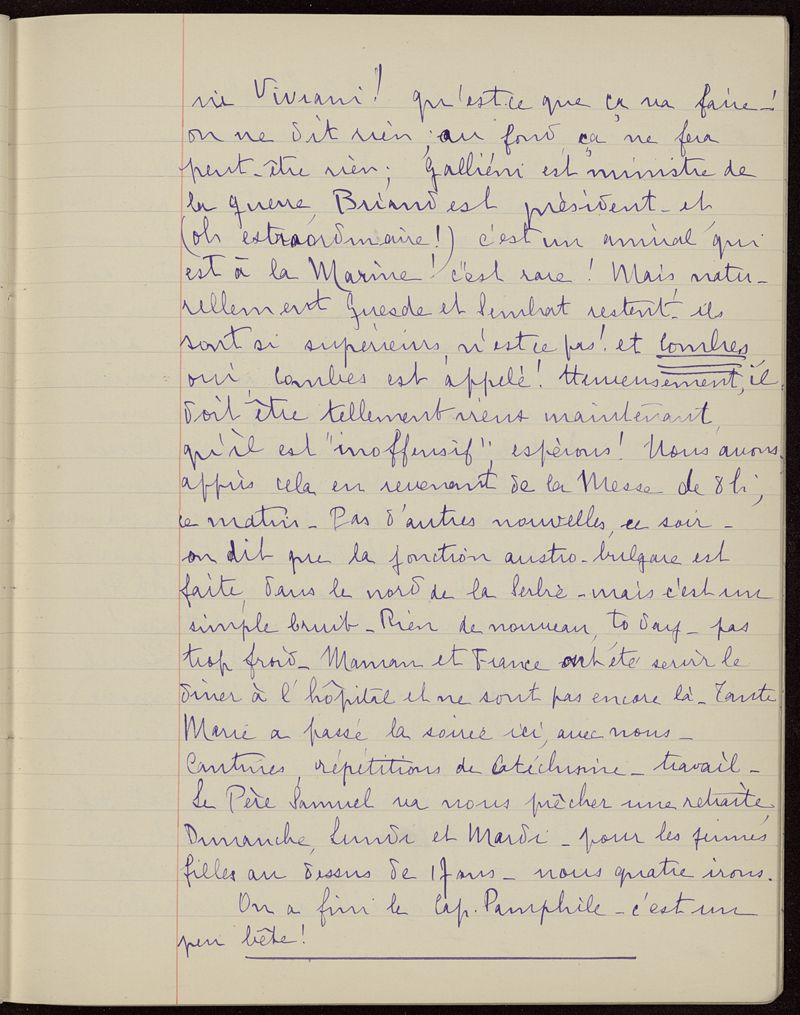 ni Viviani! qu'est-ce que ça va faire-!
on ne dit rien; au fond, ça ne fera
peut-être rien; Galliéni est ministre de
la guerre, Briand est président - et
(oh extraordinaire!) c'est un amiral qui
est à la Marine! c'est rare! Mais, natu-
rellement Guesde et Sembat restent - ils
sont si supérieurs, n'est ce pas! et Combes,
oui, Combes est appelé! Heureusement, il
doit être tellement vieux maintenant,
qu'il est "inoffensif"; espérons! Nous avons
appris cela en revenant de la Messe de 8h,
ce matin - Pas d'autres nouvelles, ce soir -
on dit que la jonction austro-bulgare est
faite, dans le nord de la Serbie - mais c'est un
simple bruit - Rien de nouveau, to day - pas
trop froid - Maman et France ont été servir le
dîner à l'hôpital et ne sont pas encore là - Tante
Marie a passé la soirée ici, avec nous -
Cantines, répétitions de Catéchisme - travail -
Le Père Samuel va nous prêcher une retraite,
Dimanche, Lundi et Mardi - pour les jeunes
filles au dessus de 17 ans - nous quatre irons.
On a fini le Cap. Pamphile - c'est un
peu bête!